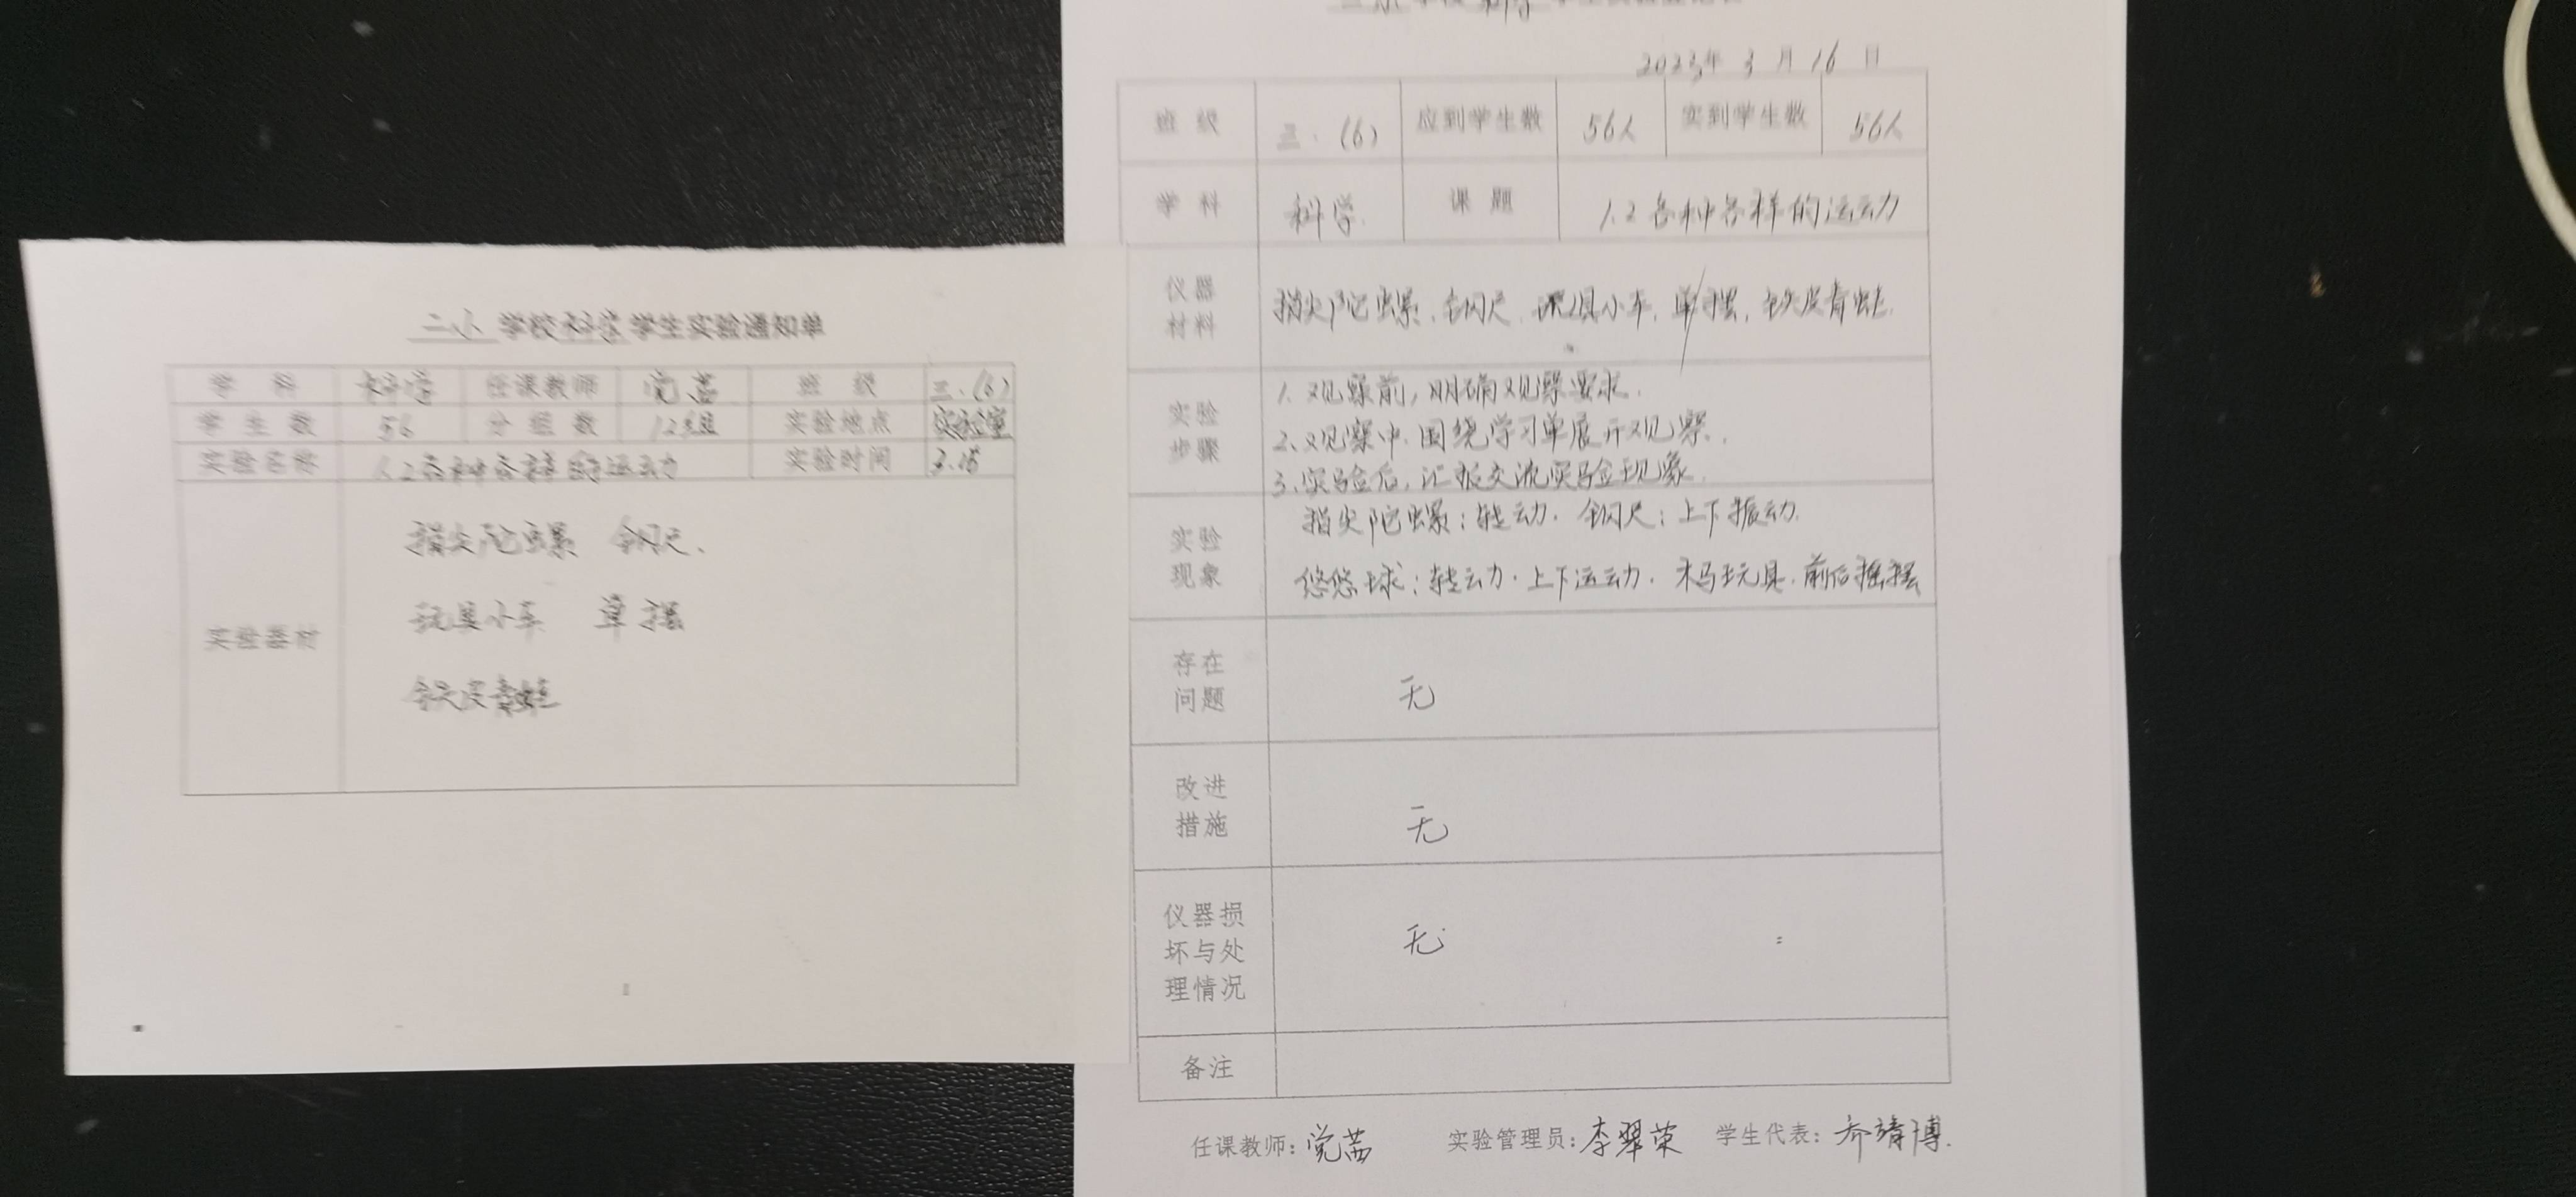 二小 学校 科学 学生实验通知单
学 科 科学 任课教师 党茜 班 级 三.(6)
学 生 数 56 分 组 数 12组 实验地点 实验室
实验名称 1.2各种各样的运动 实验时间 3.16
实验器材
指尖陀螺 钢尺、
玩具小车 单摆
铁皮青蛙
2023年 3 月 16 日
班 级 三.(6) 应到学生数 56人 实到学生数 56人
学 科 科学 课 题 1.2 各种各样的运动
仪器材料 指尖陀螺、钢尺、玩具小车、单摆、铁皮青蛙.
实验步骤
1. 观察前,明确观察要求.
2、观察中.围绕学习单展开观察.
3、实验后,汇报交流实验现象.
实验现象
指尖陀螺:转动. 钢尺:上下振动.
悠悠球:转动.上下运动. 木马玩具.前后摇摆
存在问题 无
改进措施 无
仪器损坏与处理情况 无
备注
任课教师:党茜 实验管理员:李翠荣 学生代表:乔靖博.